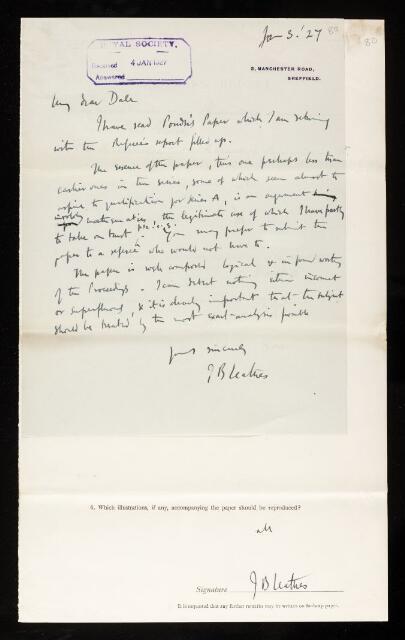 Jan 3. '27
80
ROYAL SOCIETY.
Received 4 JAN 1927
Answered
2, MANCHESTER ROAD,
SHEFFIELD.
My dear Dale
I have read Ponder's Paper which I am returning
with the Referee's report filled up.
The essence of the paper, this one perhaps less than
earlier ones in the series, some of which seem almost to
aspire to qualification for Series A, is an argument
involving mathematics, the legitimate use of which I have partly
to take on trust. You may prefer to submit the
paper to a referee who would not have to.
The paper is well composed logical & in form worthy
of the Proceedings. I can detect nothing either incorrect
or superfluous & it is clearly important that the subject
should be treated by the most exact analysis possible
Yours sincerely
J B Leathes
6. Which illustrations, if any, accompanying the paper should be reproduced?
all
Signature J B Leathes
It is requested that any further remarks may be written on foolscap paper.